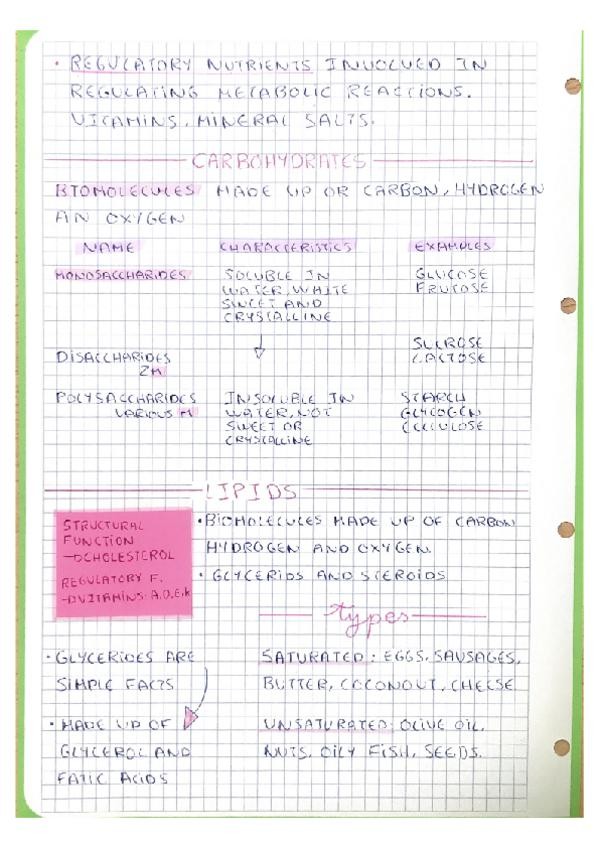 • REGULATORY NUTRIENTS INVOLVED IN
REGULATING METABOLIC REACCIONS.
VITAMINS, MINERAL SALTS.
CARBOHYDRATES
BIOMOLECULES MADE UP OR CARBON, HYDROGEN
AN OXYGEN
NAME CHARACTERISTICS EXAMPLES
MONOSACCHARIDES
SOLUBLE IN
WATER, WHITE
SWEET AND
CRYSTALLINE
GLUCOSE
FRUTOSE
DISACCHARIDES
2M
SUCROSE
LACTOSE
POLYSACCHARIDES
VARIOUS M
INSOLUBLE IN
WATER, NOT
SWEET OR
CRYSTALLINE
STARCH
GLYCOGEN
CELLULOSE
LIPIDS
STRUCTURAL
FUNCTION
→CHOLESTEROL
REGULATORY F.
→VITAMINS: A.D.E.K
• BIOMOLECULES MADE UP OF CARBON
HYDROGEN AND OXYGEN.
• GLYCERIDS AND STEROIDS
types
• GLYCERIDES ARE
SIMPLE FACTS
• MADE UP OF
GLYCEROL AND
FATIC ACIDS
SATURATED: EGGS, SAUSAGES,
BUTTER, COCONOUT, CHEESE
UNSATURATED: OLIVE OIL,
NUTS, OILY FISH, SEEDS.